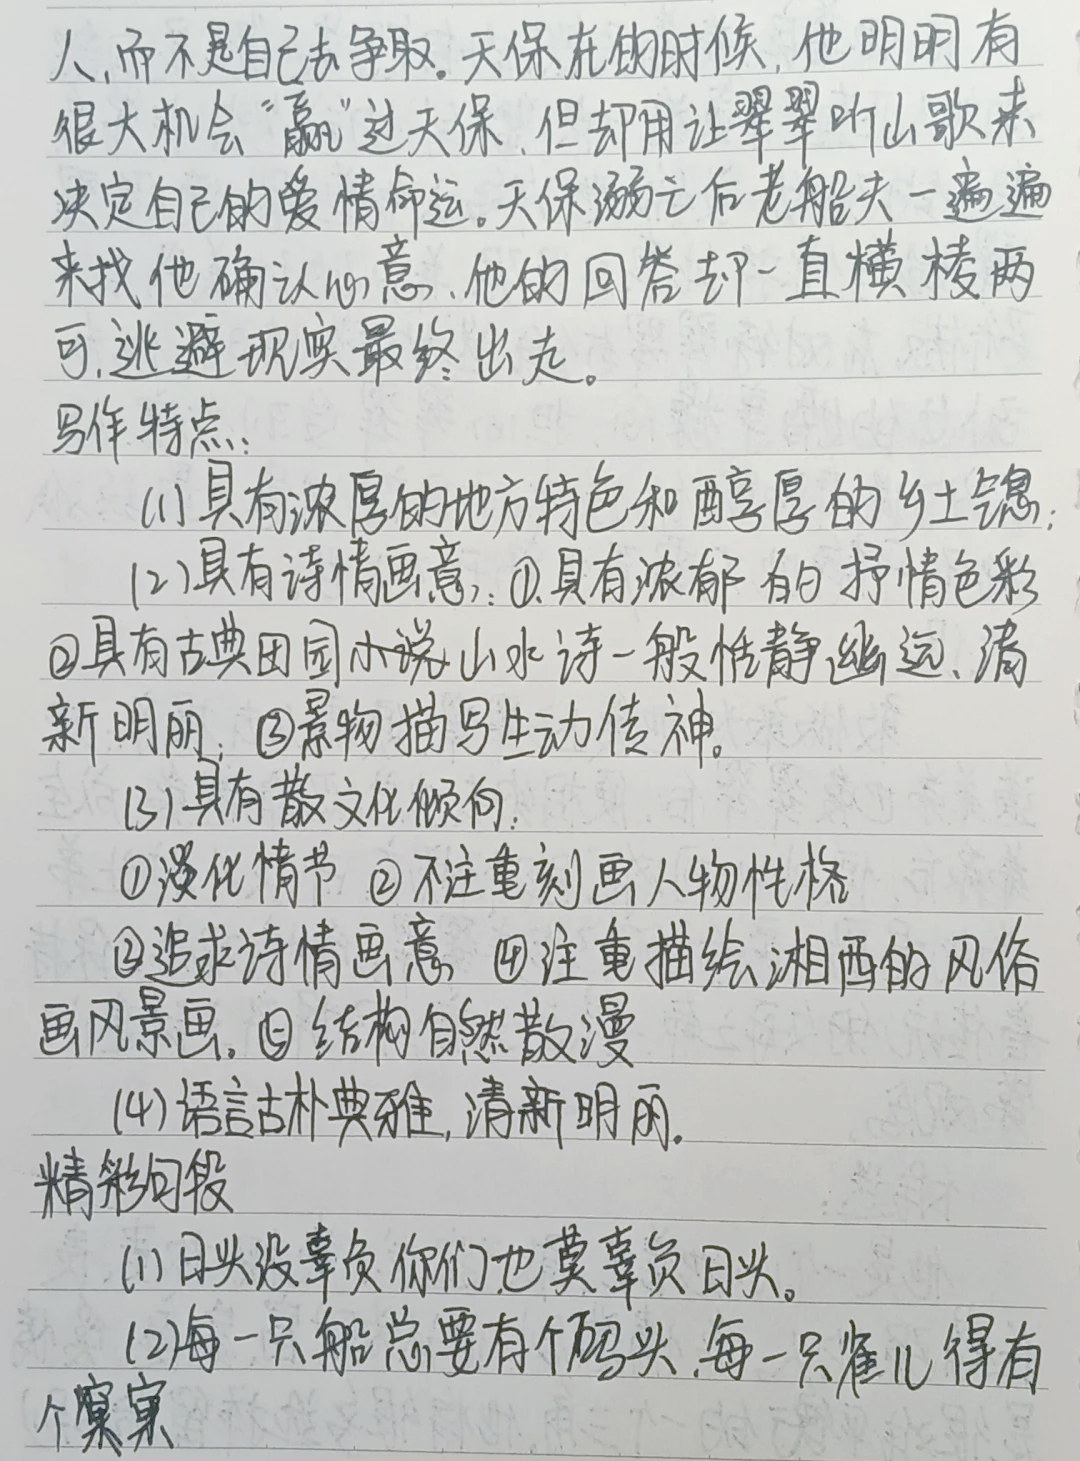 人，而不是自己去争取。天保在的时候，他明明有
很大机会“赢”过天保，但却用让翠翠听山歌来
决定自己的爱情命运。天保溺亡后老船夫一遍遍
来找他确认心意，他的回答却一直模棱两
可，逃避现实最终出走。
写作特点：
(1)具有浓厚的地方特色和醇厚的乡土气息；
(2)具有诗情画意：①具有浓郁的抒情色彩
②具有古典田园山水诗一般恬静、幽远、清
新明丽；③景物描写生动传神。
(3)具有散文化倾向：
①淡化情节 ②不注重刻画人物性格
③追求诗情画意 ④注重描绘湘西的风俗
画风景画。⑤结构自然散漫
(4)语言古朴典雅，清新明丽。
精彩句段
(1)日头没辜负你们，也莫辜负日头。
(2)每一只船总要有个码头，每一只雀儿得有
个窠